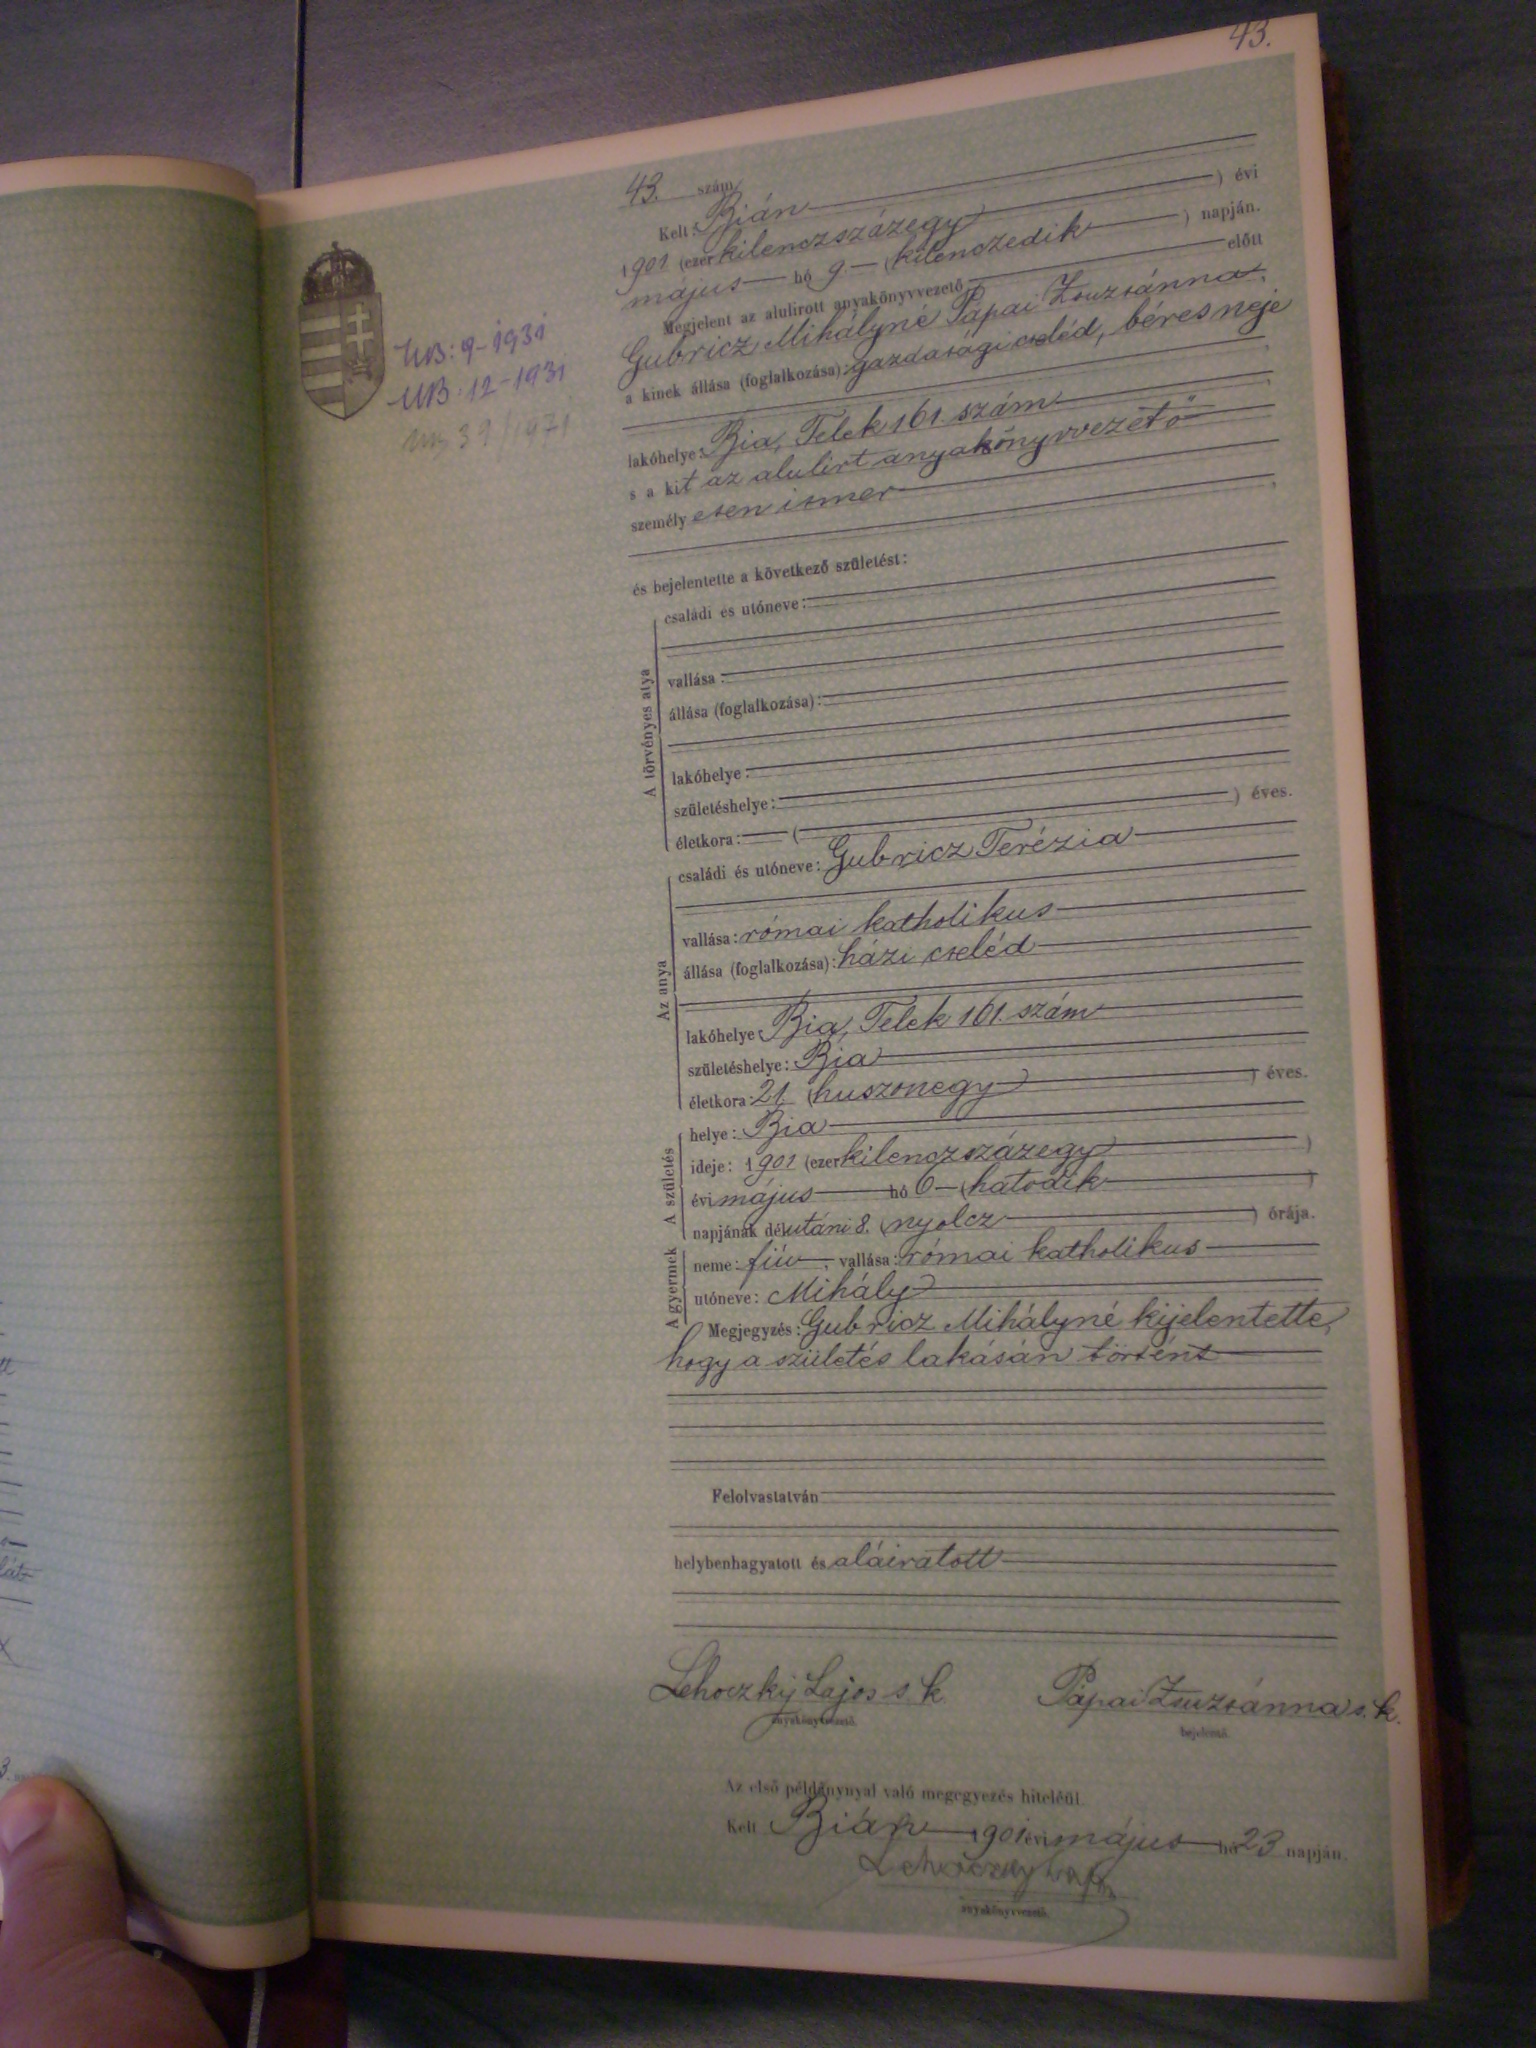 43.
43. szám
Kelt: Bián
) évi
1901 (ezer kilenczszázegy
május hó 9. (kilenczedik ) napján.
Megjelent az alulirott anyakönyvvezető előtt
Gubricz Mihályné Pápai Zsuzsánna,
a kinek állása (foglalkozása): gazdasági cseléd, béres neje
lakóhelye: Bia, Telek 161. szám
s a kit az alulirt anyakönyvvezető
személyesen ismer
és bejelentette a következő születést:
A törvényes atya
családi és utóneve:
vallása:
állása (foglalkozása):
lakóhelye:
születéshelye:
életkora: ( ) éves.
Az anya
családi és utóneve: Gubricz Terézia
vallása: római katholikus
állása (foglalkozása): házi cseléd
lakóhelye: Bia, Telek 161. szám
születéshelye: Bia
életkora: 21 (huszonegy ) éves.
A születés
helye: Bia
ideje: 1901 (ezer kilenczszázegy )
évi május hó 6 (hatodik )
napjának délutáni 8. (nyolcz ) órája.
A gyermek
neme: fiú, vallása: római katholikus
utóneve: Mihály
Megjegyzés: Gubricz Mihályné kijelentette,
hogy a születés lakásán történt
Felolvastatván
helybenhagyatott és aláiratott
Lehoczky Lajos s k.
anyakönyvvezető.
Pápai Zsuzsánna s. k.
bejelentő.
Az első példánynyal való megegyezés hiteléül.
Kelt Bián 1901 évi május hó 23 napján.
Lehoczky Lajos
anyakönyvvezető.
UB: 9-1931
UB: 12-1931
39/1971